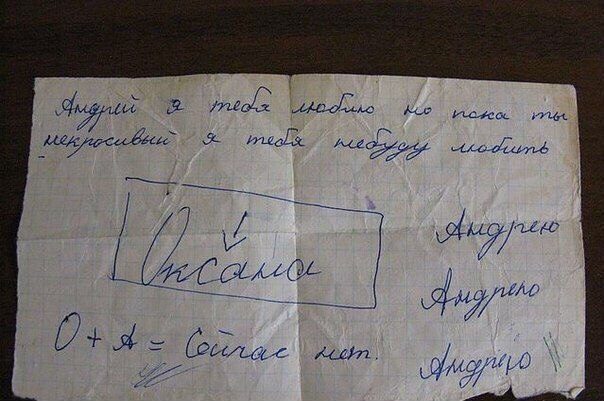 Андрей я тебя люблю но пока ты
некросивый я тебя небуду любить
Оксана
Андрею
Андрею
О + А = Сейчас нет.
Андрею